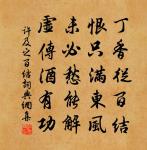 丁香從百結
恨只滿東風
未必愁能解
虛傳酒有功
許及之百結詞典網集